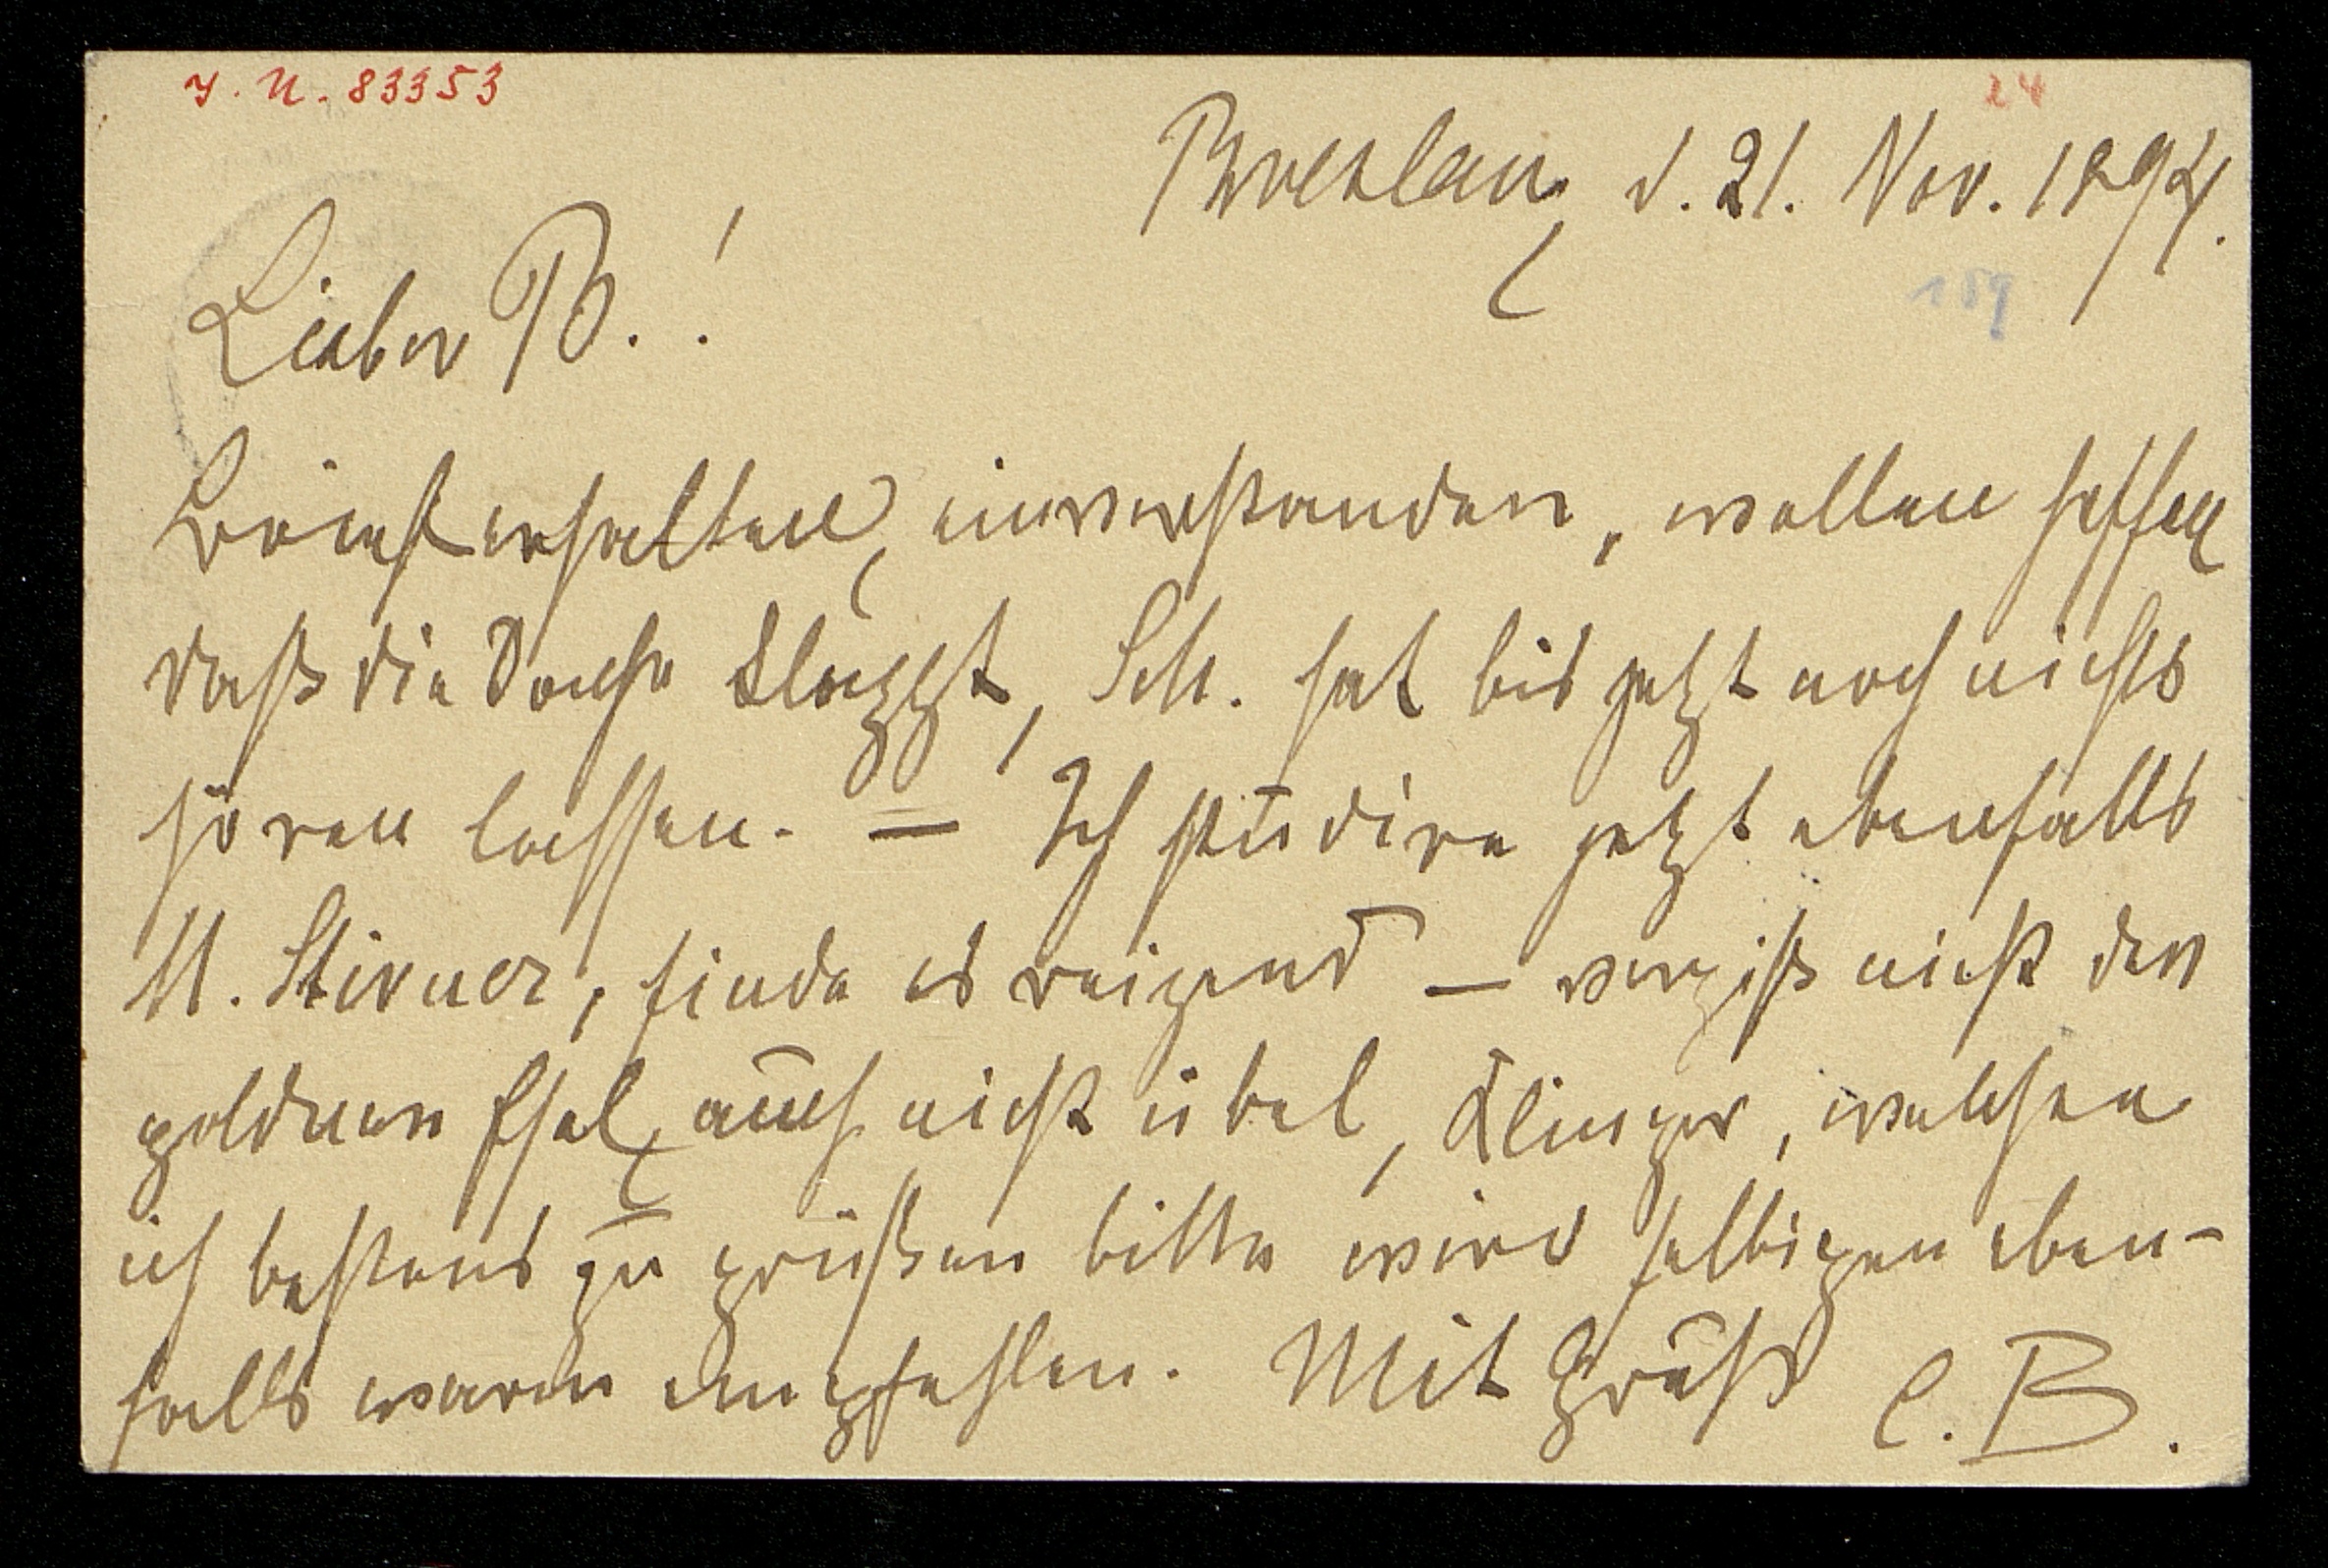 J. N. 83353
24
Breslau, d. 21. Nov. 1894.
159
Lieber B.!
Brief erhalten, einverstanden, wollen hoffen
daß die Sache klappt, Sch. hat bis jetzt noch nichts
hören lassen. — Ich studire jetzt ebenfalls
M. Stirner, finde es reizend — vergiß nicht den
goldnen Esel, auch nicht übel, Klinger, welchen
ich bestens zu grüßen bitte wird selbigen eben-
falls warm empfehlen. Mit Gruß C. B.